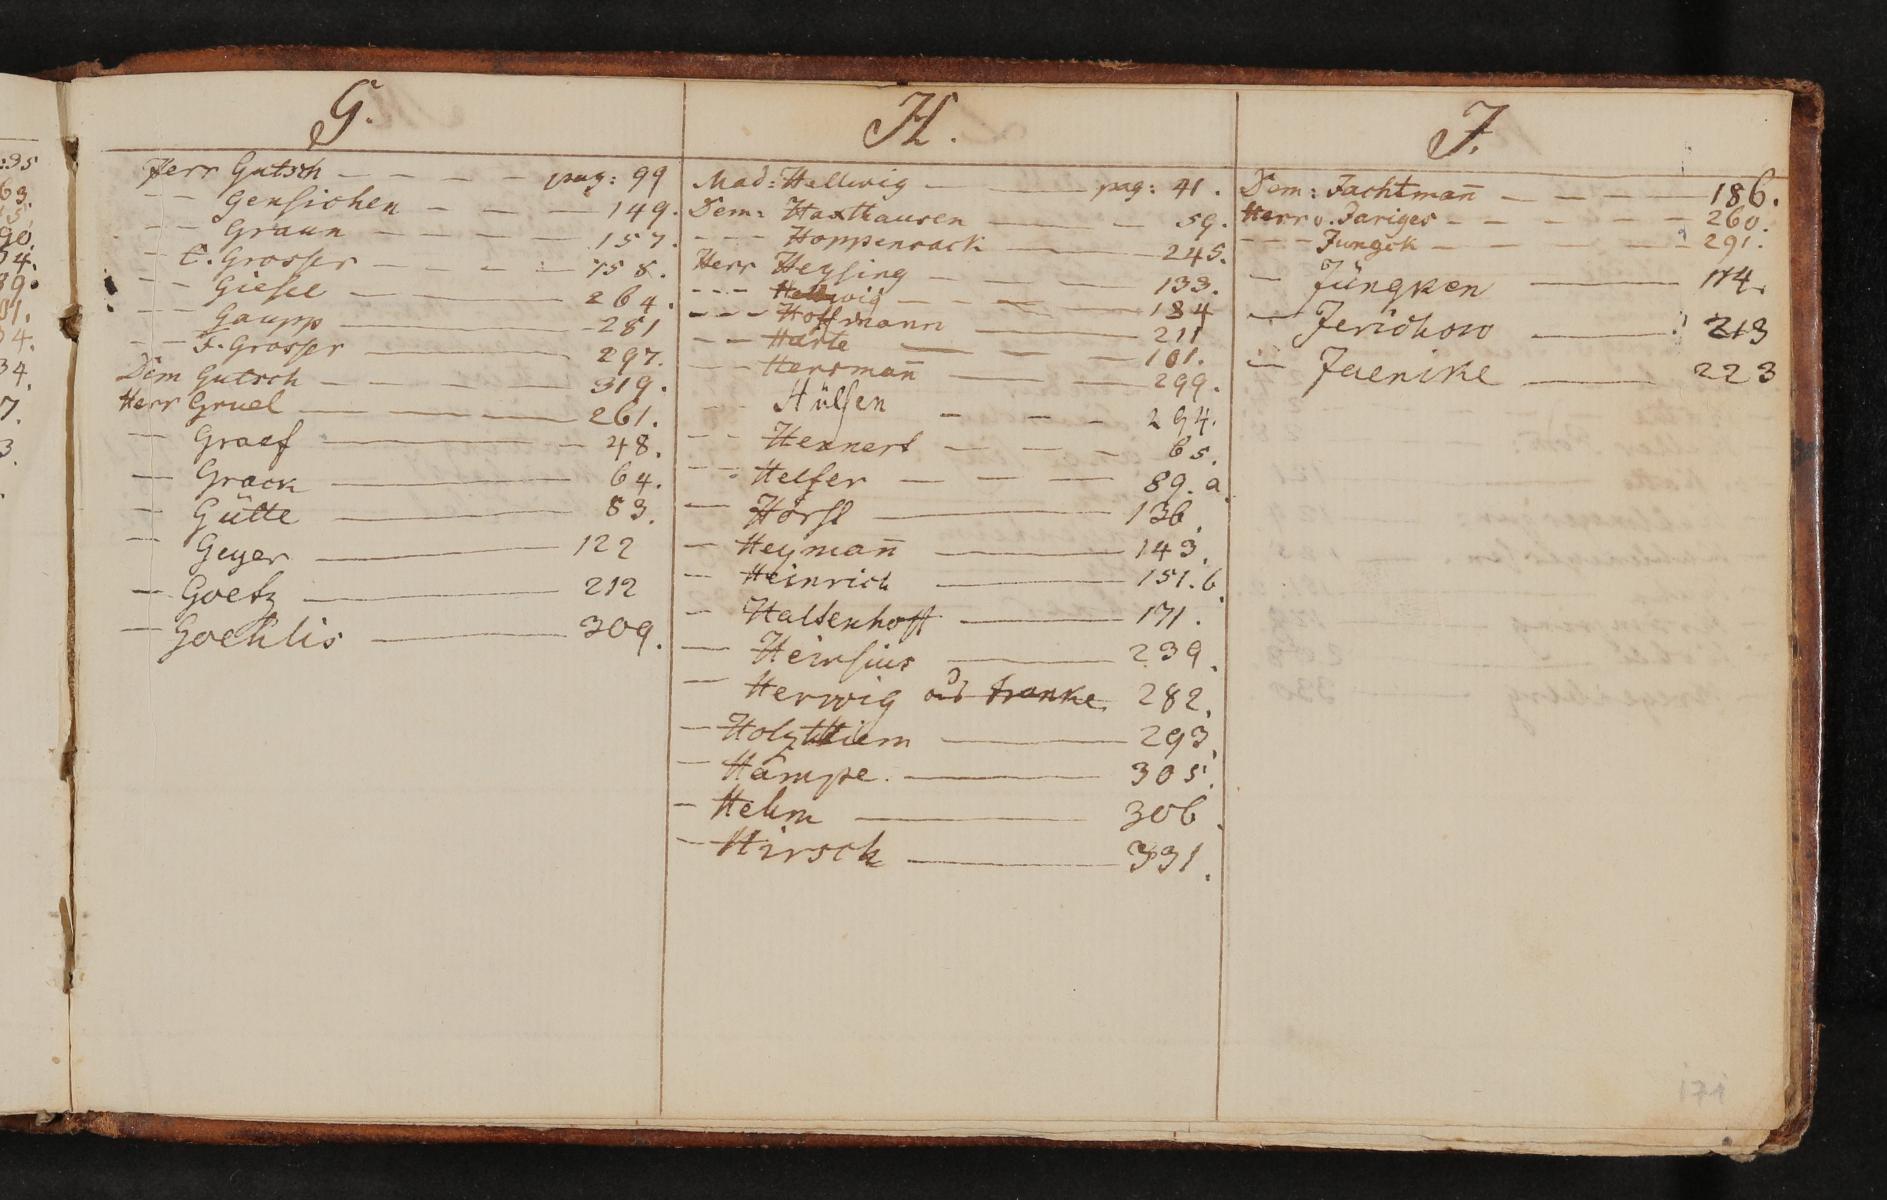 G.
Herr Gutsch — — — — pag: 99
— — Gensichen — — — 149.
— — — Graun — — — — 157.
— C. Grosser — — — — 158.
— — Giesel — 264.
— — Gaupp — 281
— — F. Grosser — 297.
Dem Gutsch — — — — 319.
Herr Gruel — — 261.
— Graef — 48.
— Grack — 64.
— Gütte — 83.
— Geyer — 122
— Goetz — 212
— Goehlis — 309.
H.
Mad: Hellwig — pag: 41.
Dem: Haxthausen — — 59.
— — — Hoppenrack — 245.
Herr Heysing — — — 133.
— — — Hellwig — — — — 184
— — — Hoffmann — 211
— — Harte — — — 101.
— — Hersmañ — — — 299.
— — Hülsen — — — 294.
— — Hennert — — — 65.
— — Helfer — — — 89. a.
— Horst — 136.
— Heymañ — 143.
— Heinrich — 151. b.
— Haltenhoff — 171.
— Heinsius — 239.
— Herwig und Franke. 282.
— Holzthiem — 293.
— Hampe. — 305.
— Helm — 306.
— Hirsch — 331.
J.
Dem: Jachtmañ — — — — 186.
Herr v. Jariges — — — — 260.
— — — Jungck — — — 291.
— Jüngken — 114.
— Jerichow — 213
— Jaenike — 223